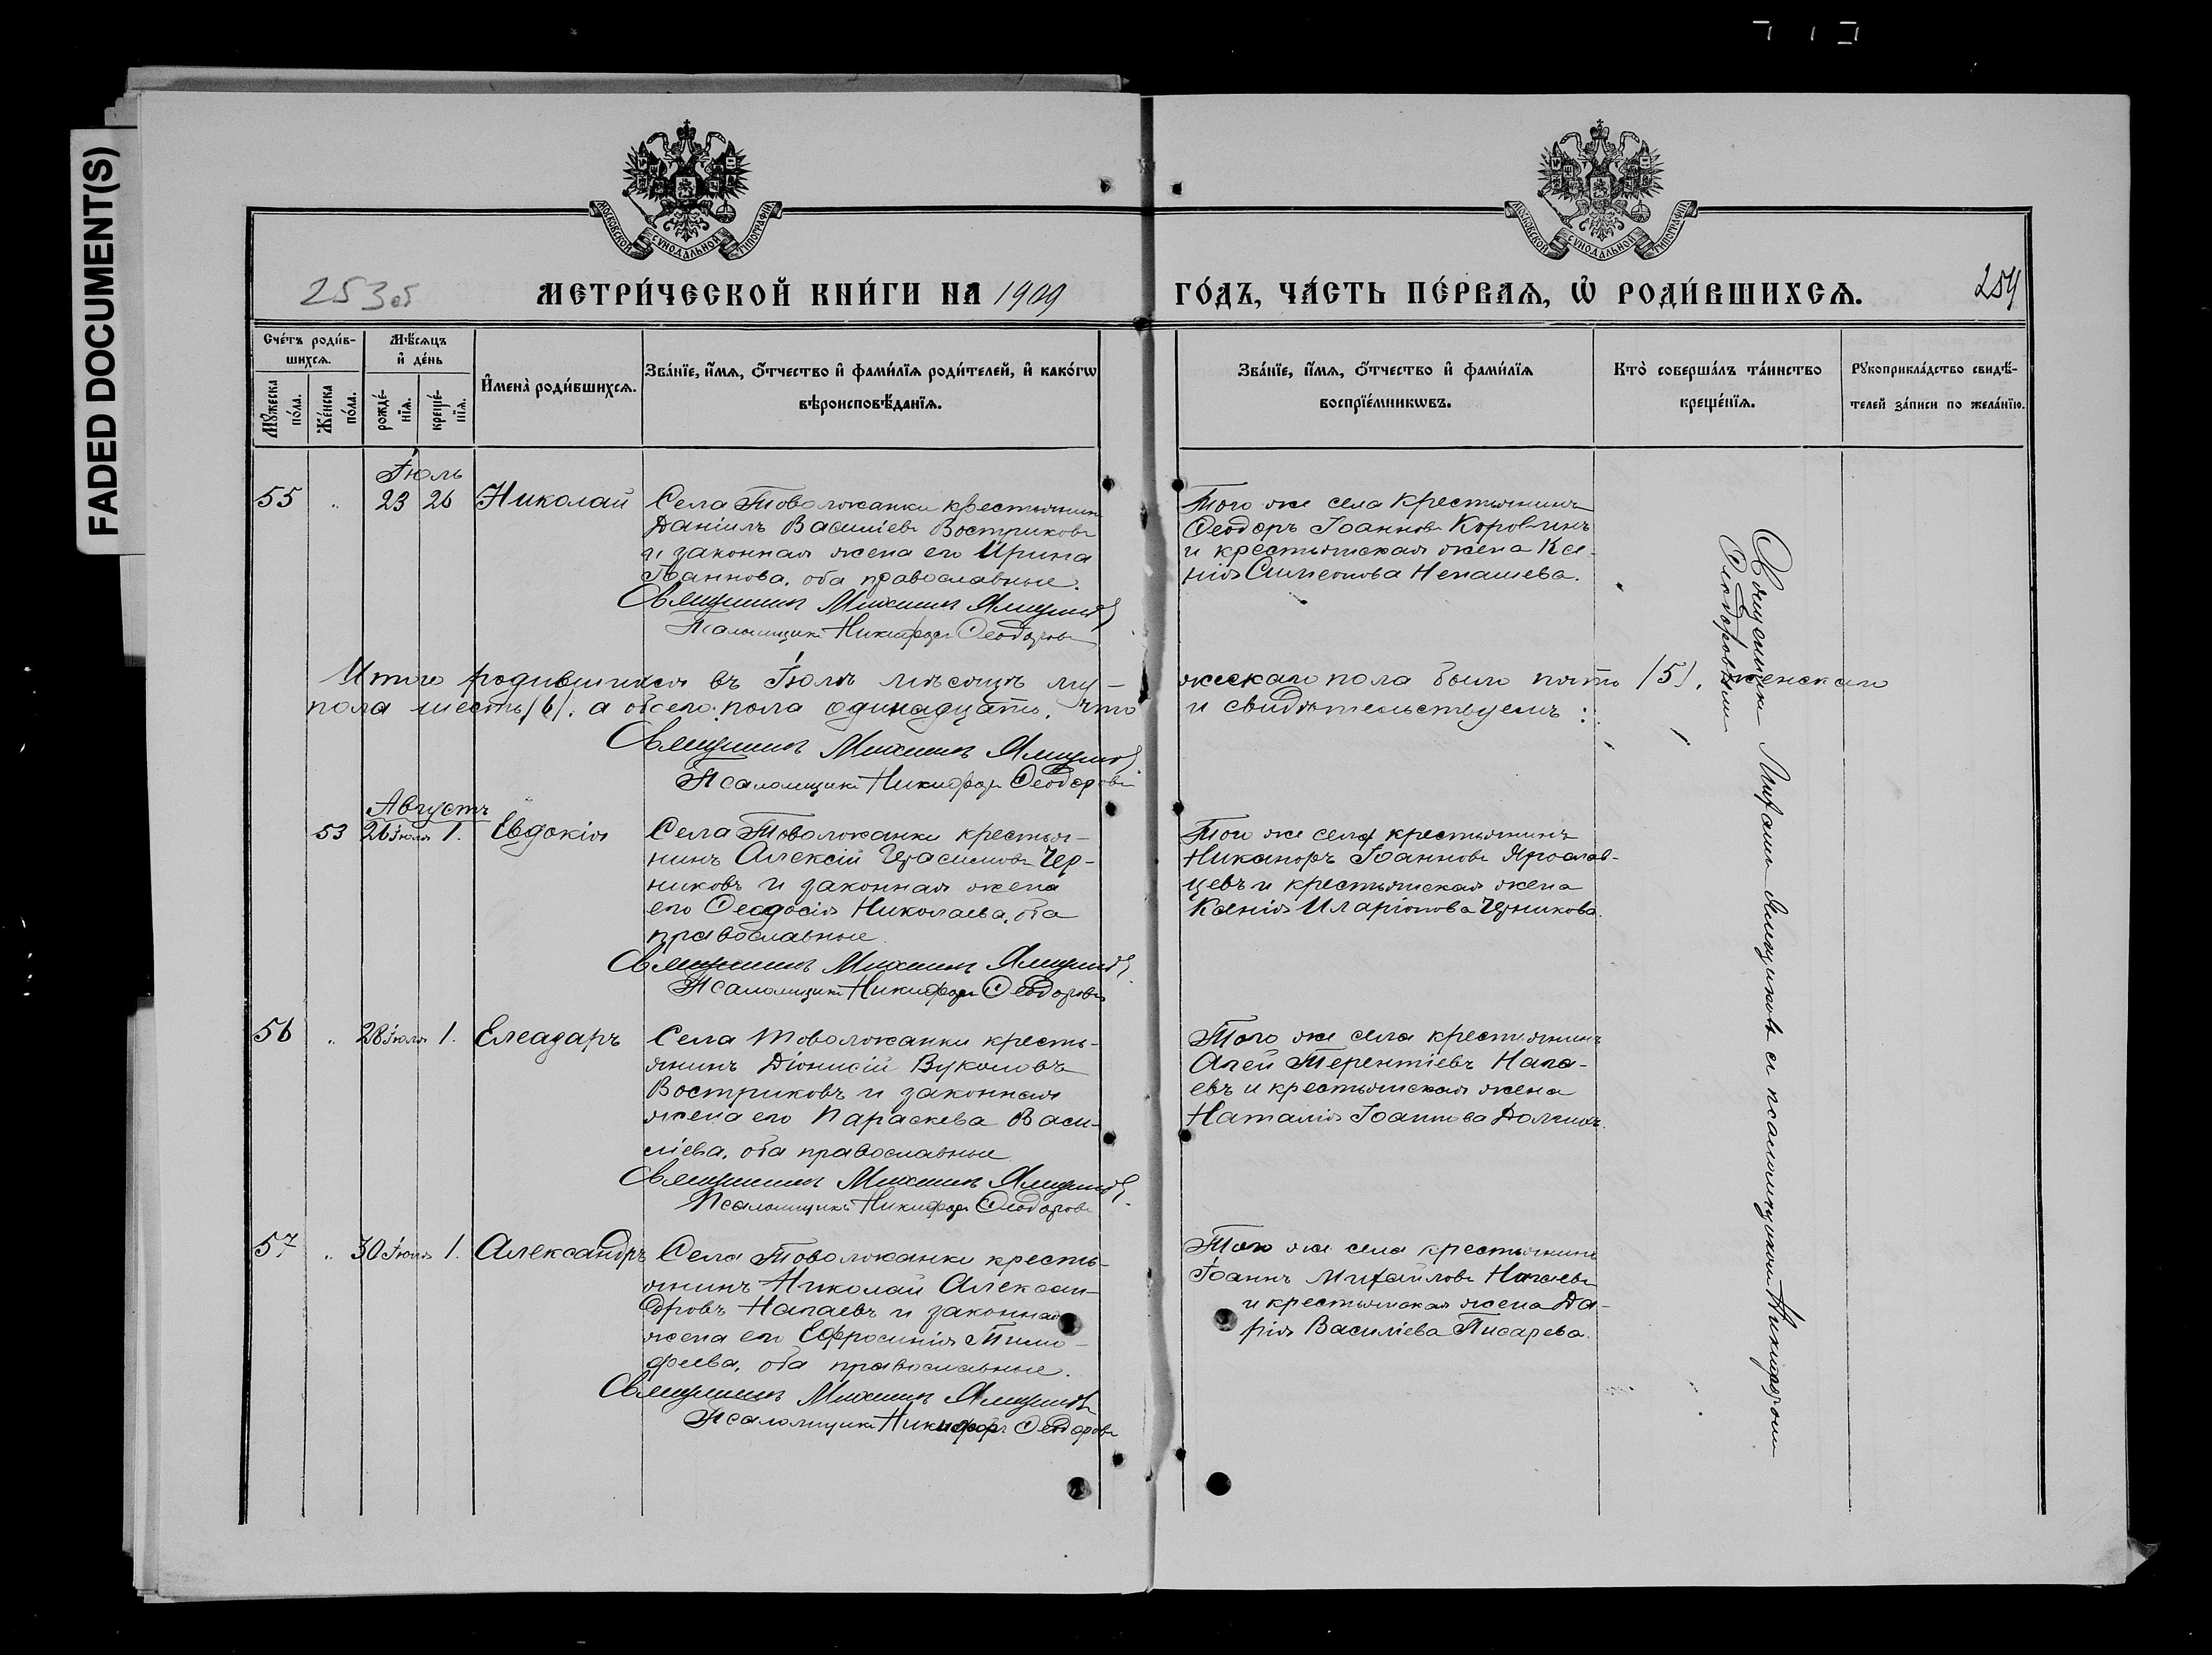 FADED DOCUMENT(S)
МОСКОВСКОЙ СѴНОДАЛЬНОЙ ТИПОГРАФІИ
МОСКОВСКОЙ СѴНОДАЛЬНОЙ ТИПОГРАФІИ
253об
МЕТРИ́ЧЕСКОЙ КНИ́ГИ НА 1909
ГО́ДЪ, ЧА́СТЬ ПЕ́РВАѦ, Ѡ҆ РОДИ́ВШИХСѦ.
254
Сче́тъ роди́в-
шихсѧ.
Мꙋ́жеска
по́ла.
Же́нска
по́ла.
Мѣ́сѧцъ
и҆ де́нь
рожде́-
нїѧ.
креще́-
нїѧ.
И҆мена̀ роди́вшихсѧ.
Зва́нїе, и҆́мѧ, ѻ҆́тчество и҆ фами́лїѧ роди́телей, и҆ како́гѡ
вѣроисповѣ́данїѧ.
Зва́нїе, и҆́мѧ, ѻ҆́тчество и҆ фами́лїѧ
воспрїе́мникѡвъ.
Кто̀ соверша́лъ та́инство
креще́нїѧ.
Рꙋкоприкла́дство свидѣ́-
телей за́писи по жела́нїю.
Іюль
55 " 23 26 Николай Села Товоложанки крестьянинъ
Даніилъ Васильевъ Востриковъ
и законная жена его Ирина
Іоаннова, оба православные.
Священникъ Михаилъ Ямщиковъ
Псаломщикъ Никифоръ Ѳеодоровъ
Того же села крестьянинъ
Ѳеодоръ Іоанновъ Коровинъ
и крестьянская жена Ксе-
нія Симеонова Ненашева.
Итого родившихся въ Іюлѣ мѣсяцѣ му- жескаго пола было пять /5/, женскаго
пола шесть /6/, а обоего пола одинадцать, что и свидѣтельствуемъ:
Священникъ Михаилъ Ямщиковъ
Псаломщикъ Никифоръ Ѳеодоровъ
Августъ
53 26 Іюля 1. Евдокія Села Товоложанки крестья-
нинъ Алексій Герасимовъ Чер-
никовъ и законная жена
его Ѳеодосія Николаева, оба
православные
Священникъ Михаилъ Ямщиковъ
Псаломщикъ Никифоръ Ѳеодоровъ
Того же села крестьянинъ
Никаноръ Іоанновъ Ярослав-
цевъ и крестьянская жена
Ксенія Иларіонова Черникова.
56 " 28 Іюля 1. Елеазаръ Села Товоложанки кресть-
янинъ Діонисій Вуколовъ
Востриковъ и законная
жена его Параскева Васи-
ліева, оба православные
Священникъ Михаилъ Ямщиковъ
Псаломщикъ Никифоръ Ѳеодоровъ
Того же села крестьянинъ
Терентіевъ Напа-
евъ и крестьянская жена
Наталія Іоаннова
57 " 30 Іюля 1. Александръ Села Товоложанки кресть-
янинъ Николай Алексан-
дровъ Напаевъ и законная
жена его Ефросинія Тимо-
феева, оба православные.
Священникъ Михаилъ Ямщиковъ
Псаломщикъ Никифоръ Ѳеодоровъ
Того же села крестьянинъ
Іоаннъ Михайловъ
и крестьянская жена Да-
рія Василіева Писарева.
Священникъ Михаилъ Ямщиковъ съ псаломщикомъ Никифоромъ
Ѳеодоровымъ